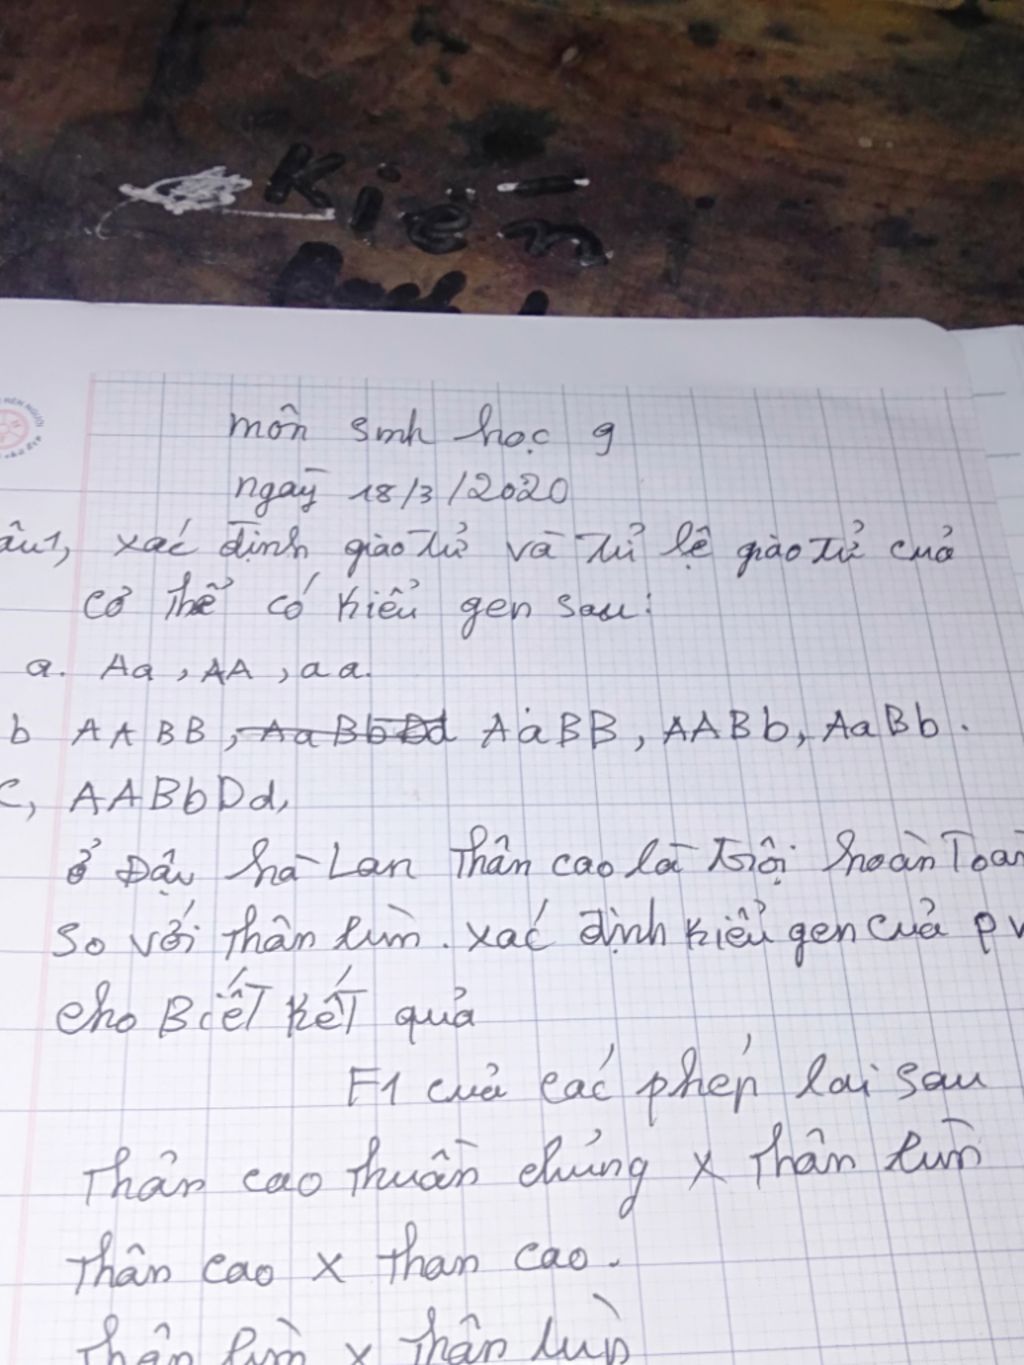 Kiên
môn sinh học 9
ngày 18/3/2020
câu1, xác định giao tử và tỉ lệ giao tử của
cơ thể có kiểu gen sau:
a. Aa, AA, aa.
b AABB, AaBbDd AaBB, AABb, AaBb.
c, AABbDd,
ở Đậu hà Lan Thân cao là trội hoàn Toàn
so với thân lùn. xác định kiểu gen của p v
cho Biết kết quả
F1 của các phép lai sau
Thân cao thuần chủng x Thân lùn
Thân cao x than cao.
Thân lùn x Thân lùn